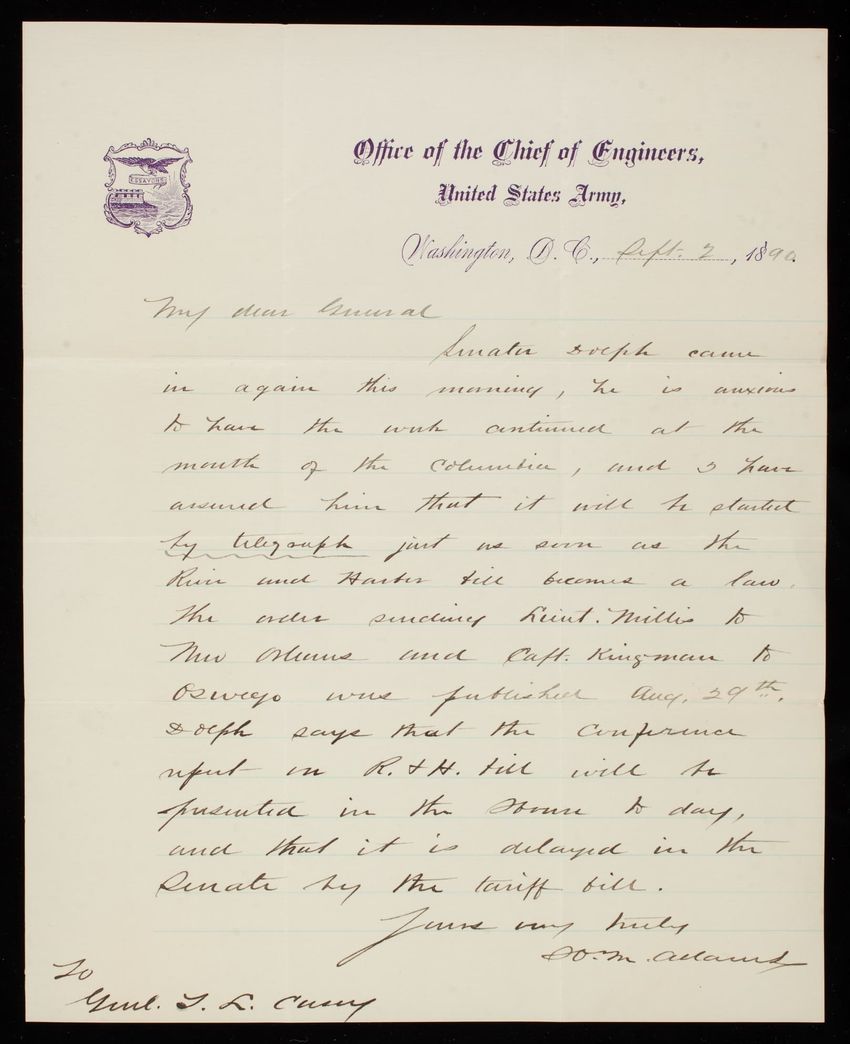 ESSAYONS
Office of the Chief of Engineers,
United States Army,
Washington, D. C., Sept. 2, 1890.
My dear General
Senator Dolph came
in again this morning, he is anxious
to have the work continued at the
mouth of the Columbia, and I have
assured him that it will be started
by telegraph just as soon as the
River and Harbor bill becomes a law.
The order sending Lieut. Millis to
New Orleans and Capt. Kingman to
Oswego was published Aug. 29th.
Dolph says that the Conference
report on R. & H. bill will be
presented in the House to day,
and that it is delayed in the
Senate by the tariff bill.
Yours very truly
H. M. Adams
To
Genl. T. L. Casey